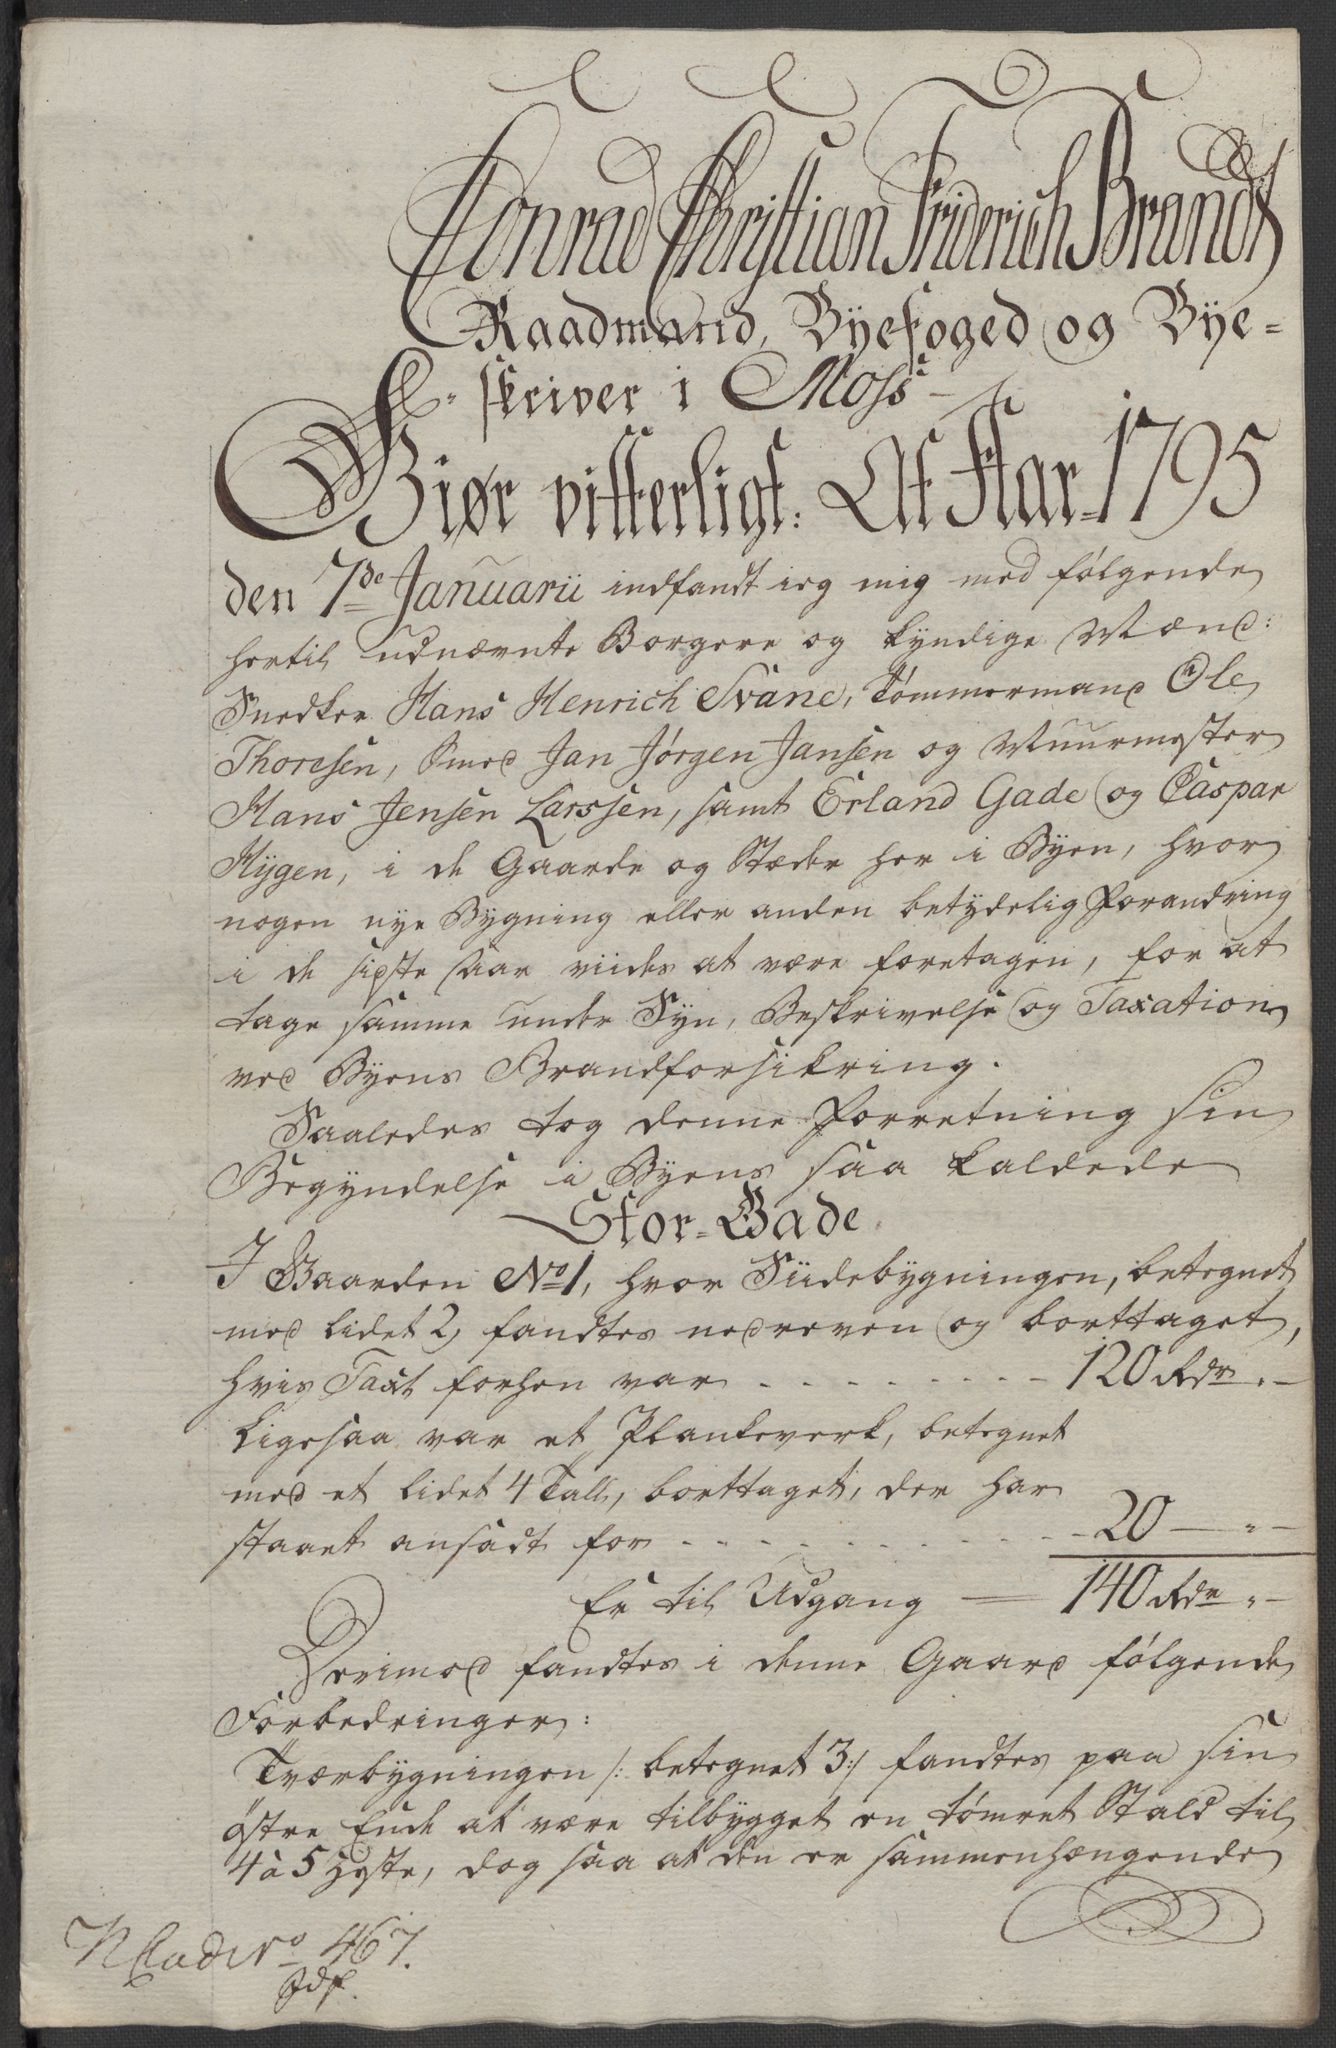 Conrad Christian Friderich Brandt
Raadmand, Byefoged og Bye-
skriver i Moss
Giør vitterligt: At Aar 1795
den 7de Januarii indfandt ieg mig med følgende
hertil udnævnte Borgere og kyndige Mænd:
Snedker Hans Henrich Svane, Tømmermand Ole
Thoresen, Smed Jan Jørgen Jansen og Muurmester
Hans Jensen Larssen, samt Erland Gade og Caspar
Hygen, i de Gaarde og Stæder her i Byen, hvor
nogen nye Bygning eller anden betydelig Forandring
i de sidste Aar viides at være foretagen, for at
tage samme under Syn, Beskrivelse og Taxation
ved Byens Brandforsikring.
Saaledes tog denne Forretning sin
Begyndelse i Byens saa kaldede
Stor-Gade.
I Gaarden No 1, hvor Siidebygningen, betegnet
med lidet 2, fandtes nedreven og borttaget,
hvis Taxt forhen var - - - - - - - - 120 Rdr. -
Ligesaa var et Plankeverk, betegnet
med et lidet 4 Tall, borttaget, der har
staaet ansadt for - - - - - - - - - - 20 - " -
Er til Udgang = 140 Rdr " -
Derimod fandtes i denne Gaard følgende
Forbedringer:
Tværbygningen /: betegnet 3:/ fandtes paa sin
østre Ende at være tilbygget en tømret Stald til
4 à 5 Heste, dog saa at den er sammenhængende
No 467.